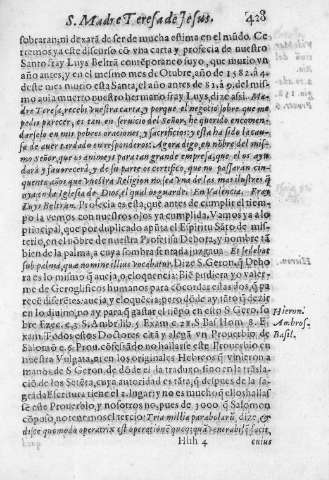 S. Madre Teresa de Iesus. 428
sobraran; ni dexarà de ser de mucha estima en el mũdo. Ce
rremos ya este discurso cõ vna carta y profecia de nuestro
Santo fray Luys Beltrã contẽporaneo suyo, que murio vn
año antes, y en el mesmo mes de Otubre, año de 1582. à 4.
deste mes murio esta Santa, el año antes de 81. à 9. del mis-
mo auia muerto nuestro hermano fray Luys, dize assi. Ma-
dre Teresa, recebi vuestra carta, y porque el negocio sobre que me
pedis parecer, es tan en seruicio del Señor, he querido encomen-
darselo en mis pobres oraciones, y sacrificios: y esta ha sido la cau-
sa de auer tardado en responderos: Agora digo, en nõbre del mis-
mo Señor, que os animeys para tan grande empresa, que el os ayu-
darà y fauorecerà, y de su parte os certifico, que no passaràn cin-
quenta años que vuestra Religion no sea vna de las mas ilustres q̃
aya en la Iglesia de Dios, el qual os guarde: En Valencia. Fray
Luys Beltran. Profecia es esta, que antes de cumplir el tiem-
po la vemos con nuestros ojos ya cumplida. Vamos ya a lo
principal, que por duplicado apũta el Espiritu Sãto de mis-
terio, en el nõbre de nuestra Profetissa Debora, y nombra tã
bien de la palma, a cuya sombra se
sub palma, quæ nomine illius vocabatur. Dize S. Geron. q̃ Debo
ra es lo mismo q̃ aueja, o eloquencia: Biẽ pudiera yo valer-
me de Geroglificos humanos para cõcordar estas dos, q̃ pa
recẽ diferẽtes: aueja, y eloquẽcia; pero dõde ay tãto q̃ dezir
en lo diuino, no ay para q̃ gastar el tiẽpo en esto S. Gero. so
bre Ezec. c. 3. S. Ambr. lib. 5. Exam. c. 21. S. Bas. Hom. 8. E
xam. Todos estos Doctores citã y alegã vn Prouerbio de
Salomõ c. 6. Prou. cõfessãdo no hallarse este Prouerbio en
nuestra Vulgata, ni en los originales Hebreos q̃ vinieron a
manos de S. Geron. de dõde el la traduxo, sino en la trasla-
ciõ de los Setẽta, cuya autoridad es tãta, q̃ despues de la sa-
grada Escritura tiene el 2. lugar; y no es mucho q̃ ellos hallas
se este Prouerbio, y nosotros no, pues de 3000 q̃ Salomon
cõpuso, no tenemos el tercio: Tria millia parabolarũ, dize, &
disce quomodo operatrix est operationẽ
Hieron.
Ambros.
Basil.
Hhh 4 cuius